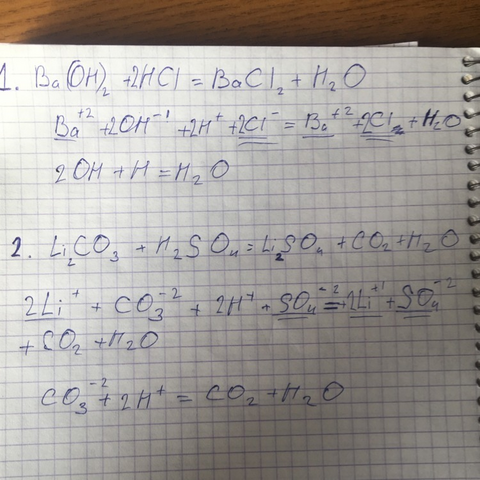 1. Ba(OH)₂ + 2HCl = BaCl₂ + H₂O
Ba⁺² + 2OH⁻¹ + 2H⁺ + 2Cl⁻ = Ba⁺² + 2Cl₂ + H₂O
2OH + H = H₂O
2. Li₂CO₃ + H₂SO₄ = Li₂SO₄ + CO₂ + H₂O
2Li⁺ + CO₃⁻² + 2H⁺ + SO₄⁻² = 2Li⁺¹ + SO₄⁻²
+ CO₂ + H₂O
CO₃⁻² + 2H⁺ = CO₂ + H₂O